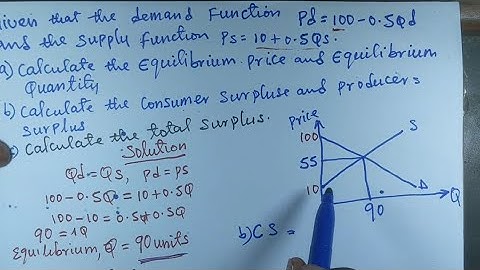 Given that the demand Function Pd = 100 - 0.5Qd
and the supply function Ps = 10 + 0.5Qs.
a) Calculate the Equilibrium price and Equilibrium
Quantity
b) Calculate the Consumer Surpluse and producers
Surplus
Calculate the total Surplus.
Solution
Qd = Qs, Pd = Ps
100 - 0.5Q = 10 + 0.5Q
100 - 10 = 0.5 + 0.5Q
90 = 1Q
Equilibrium, Q = 90 units
Price
100
S
55
10
D
Q
90
b) CS =